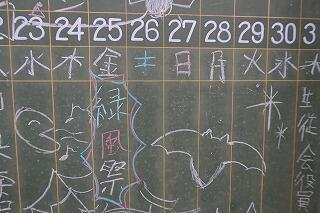 23 24 25 26 27 28 29 30 3
水 木 金 土 日 月 火 水 木
緑風祭
生徒会役員